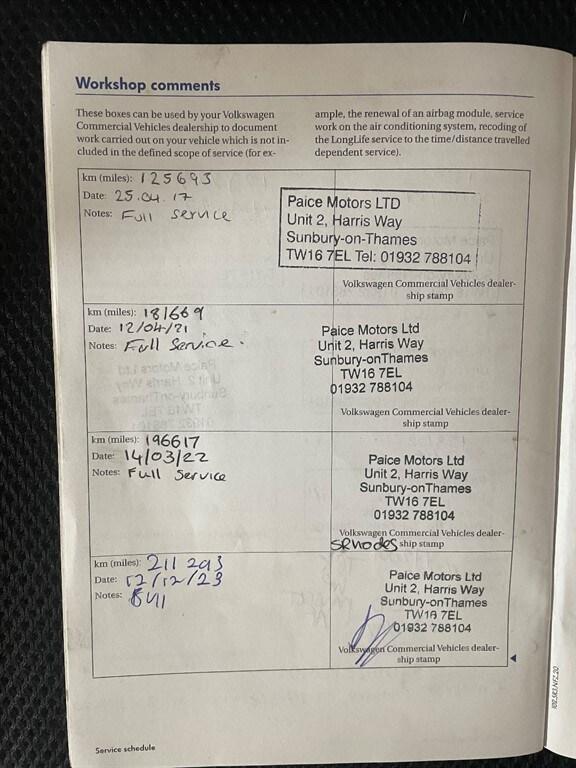 Workshop comments
These boxes can be used by your Volkswagen
Commercial Vehicles dealership to document
work carried out on your vehicle which is not in-
cluded in the defined scope of service (for ex-
ample, the renewal of an airbag module, service
work on the air conditioning system, recoding of
the LongLife service to the time/distance travelled
dependent service).
km (miles): 125693
Date: 25.04.17
Notes: Full service
Paice Motors LTD
Unit 2, Harris Way
Sunbury-on-Thames
TW16 7EL Tel: 01932 788104
Volkswagen Commercial Vehicles dealer-
ship stamp
km (miles): 181669
Date: 12/04/21
Notes: Full Service.
Paice Motors Ltd
Unit 2, Harris Way
Sunbury-onThames
TW16 7EL
01932 788104
Volkswagen Commercial Vehicles dealer-
ship stamp
km (miles): 196617
Date: 14/03/22
Notes: Full Service
Paice Motors Ltd
Unit 2, Harris Way
Sunbury-onThames
TW16 7EL
01932 788104
Volkswagen Commercial Vehicles dealer-
SRhodes ship stamp
km (miles): 211 293
Date: 12/12/23
Notes: Full
Paice Motors Ltd
Unit 2, Harris Way
Sunbury-onThames
TW16 7EL
01932 788104
Volkswagen Commercial Vehicles dealer-
ship stamp
Service schedule